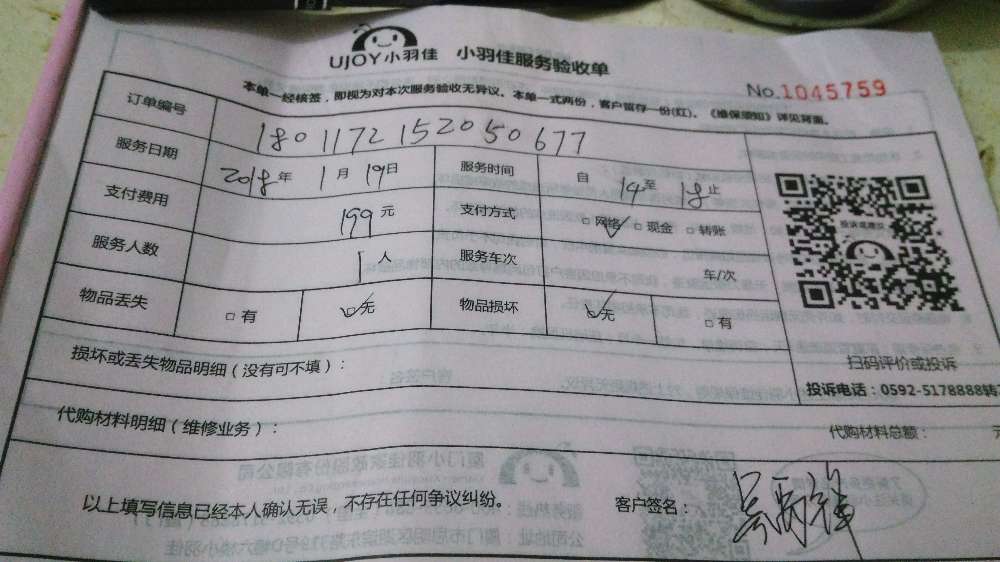 UJOY小羽佳 小羽佳服务验收单
No.1045759
本单一经核签,即视为对本次服务验收无异议。本单一式两份,客户留存一份(红)。《维保须知》详见背面。
订单编号 180117215205067​7
服务日期 2018年 1月 19日 服务时间 自 14至 18止
支付费用 199元 支付方式 □网络 □现金 □转账
服务人数 1人 服务车次 车/次
物品丢失 □有 □无 物品损坏 □无 □有
扫码评价或投诉
损坏或丢失物品明细(没有可不填):
投诉电话:0592-5178888转
代购材料明细(维修业务): 代购材料总额: 元
以上填写信息已经本人确认无误,不存在任何争议纠纷。 客户签名: